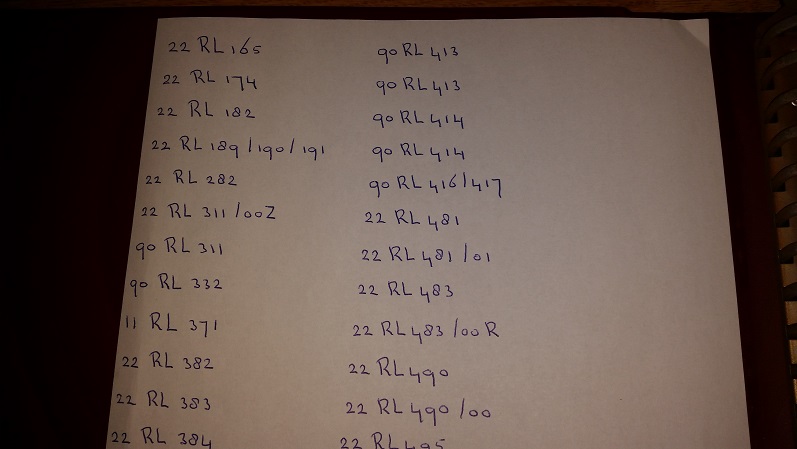 22 RL 165
22 RL 174
22 RL 182
22 RL 189/190/191
22 RL 282
22 RL 311/00Z
90 RL 311
90 RL 332
11 RL 371
22 RL 382
22 RL 383
22 RL 384
90 RL 413
90 RL 413
90 RL 414
90 RL 414
90 RL 416/417
22 RL 481
22 RL 481/01
22 RL 483
22 RL 483/00R
22 RL 490
22 RL 490/00
22 RL 495